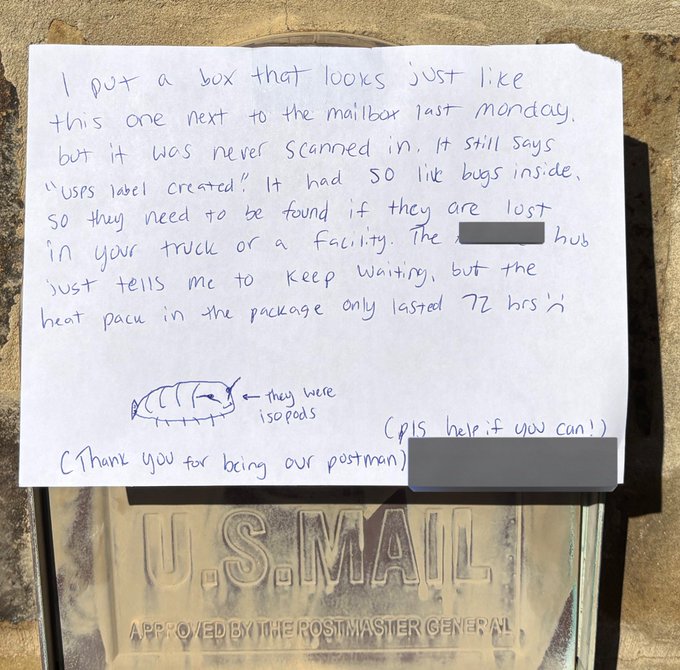 I put a box that looks just like
this one next to the mailbox last monday.
but it was never scanned in. It still says
"USPS label created". It had 50 live bugs inside.
so they need to be found if they are lost
in your truck or a facility. The hub
just tells me to keep waiting, but the
heat pack in the package only lasted 72 hrs :(
← they were
isopods
(pls help if you can!)
(Thank you for being our postman)
U.S. MAIL
APPROVED BY THE POSTMASTER GENERAL